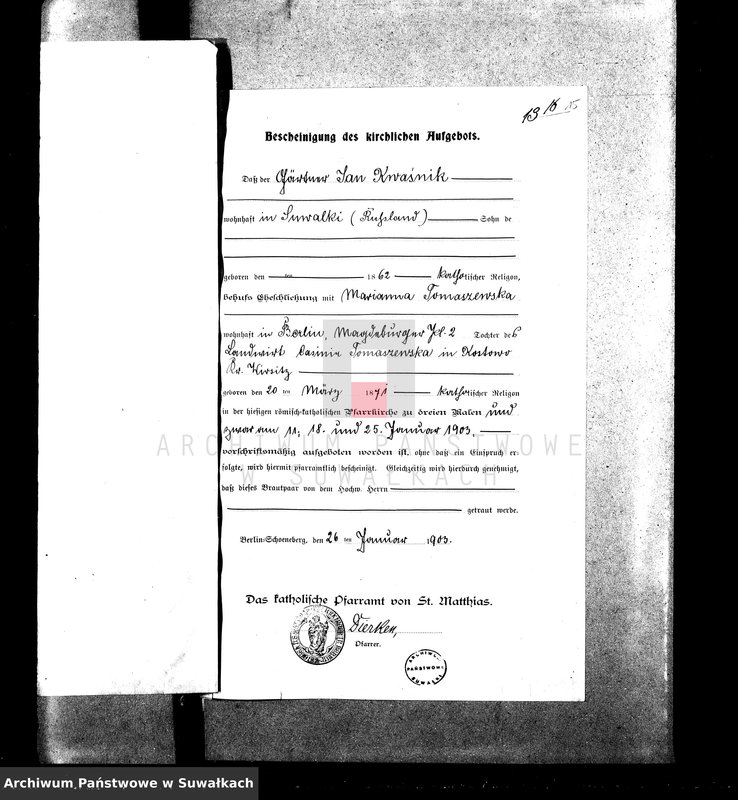 Bescheinigung des kirchlichen Aufgebots.
Daß der Gärtner Jan Kwaśnik
wohnhaft in Suwalki (Rußland) Sohn de
geboren den ten 1862 katholischer Religion,
behufs Eheschließung mit Marianna Tomaszewska
wohnhaft in Berlin, Magdeburger Pl. 2 Tochter des
Landwirt Tomaszewska in
Kr.
geboren den 20 ten März 1871 katholischer Religion
in der hiesigen römisch-katholischen Pfarrkirche zu dreien Malen und
zwar am 11. 18. und 25. Januar 1903.
vorschriftsmäßig aufgeboten worden ist, ohne daß ein Einspruch er-
folgte, wird hiermit pfarramtlich bescheinigt. Gleichzeitig wird hierdurch genehmigt,
daß dieses Brautpaar von dem Hochw. Herrn
getraut werde.
Berlin-Schoeneberg, den 26 ten Januar 1903.
Das katholische Pfarramt von St. Matthias.
Dierken,
Pfarrer.
ARCHIWUM
PAŃSTWOWE
SUWAŁKI
ARCHIWUM PAŃSTWOWE
W SUWAŁKACH
Archiwum Państwowe w Suwałkach